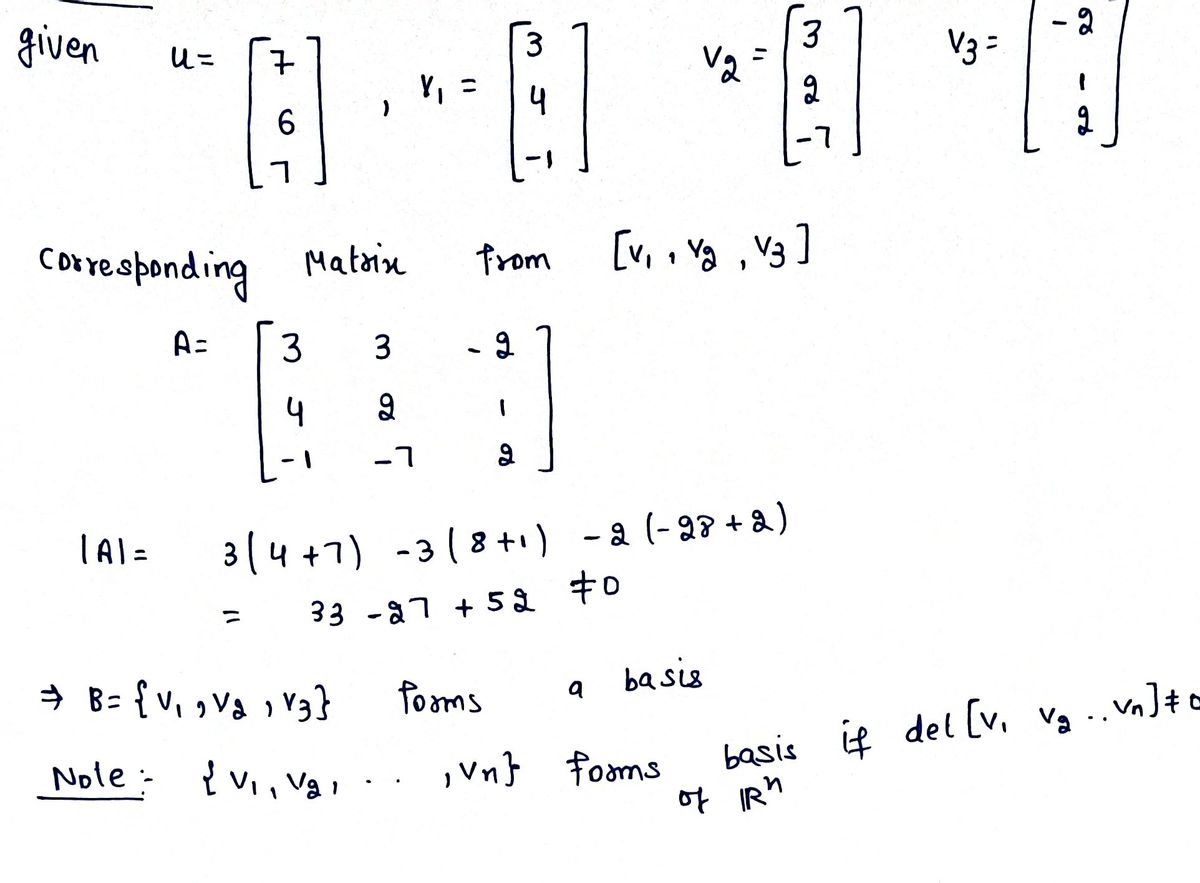 given u = [7 6 7] , v₁ = [3 4 -1] v₂ = [3 2 -7] v₃ = [-2 1 2]
Corresponding Matrix from [v₁ , v₂ , v₃]
A = [3 3 -2
4 2 1
-1 -7 2]
|A| = 3(4+7) -3(8+1) -2(-28+2)
= 33 -27 +52 ≠0
⇒ B = {v₁ , v₂ , v₃} forms a basis
Note :- {v₁, v₂, . . , vn} forms basis of ℝⁿ if del [v₁ v₂ .. vn] ≠ 0